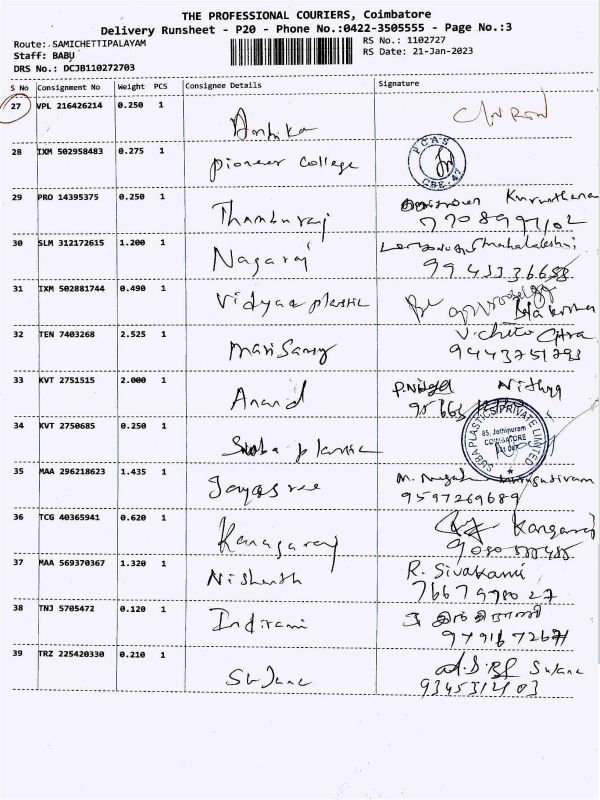 THE PROFESSIONAL COURIERS, Coimbatore
Delivery Runsheet - P20 - Phone No.:0422-3505555 - Page No.:3
Route: SAMICHETTIPALAYAM
RS No.: 1102727
Staff: BABU
RS Date: 21-Jan-2023
DRS No.: DCJB110272703
S No Consignment No Weight PCS Consignee Details Signature
27 VPL 216426214 0.250 1 Ambika
28 IXM 502958483 0.275 1 pioneer college PCAS CBE-47
29 PRO 14395375 0.250 1 Thamburaj
30 SLM 312172615 1.200 1 Nagaraj Mahalakshmi
31 IXM 502881744 0.490 1 Vidyaa plastic
32 TEN 7403268 2.525 1 MariSamy V. Chitra
9443751293
33 KVT 2751515 2.000 1 Anand Nithya
34 KVT 2750685 0.250 1 Suba plastic SUBA PLASTICS PRIVATE LIMITED 85, Jothipuram COIMBATORE
35 MAA 296218623 1.435 1 Jayasree
9597269689
36 TCG 40365941 0.620 1 Kanagaraj Kangaraj
37 MAA 569370367 1.320 1 Nishanth R. Sivakami
38 TNJ 5705472 0.120 1 Indirani
39 TRZ 225420330 0.210 1